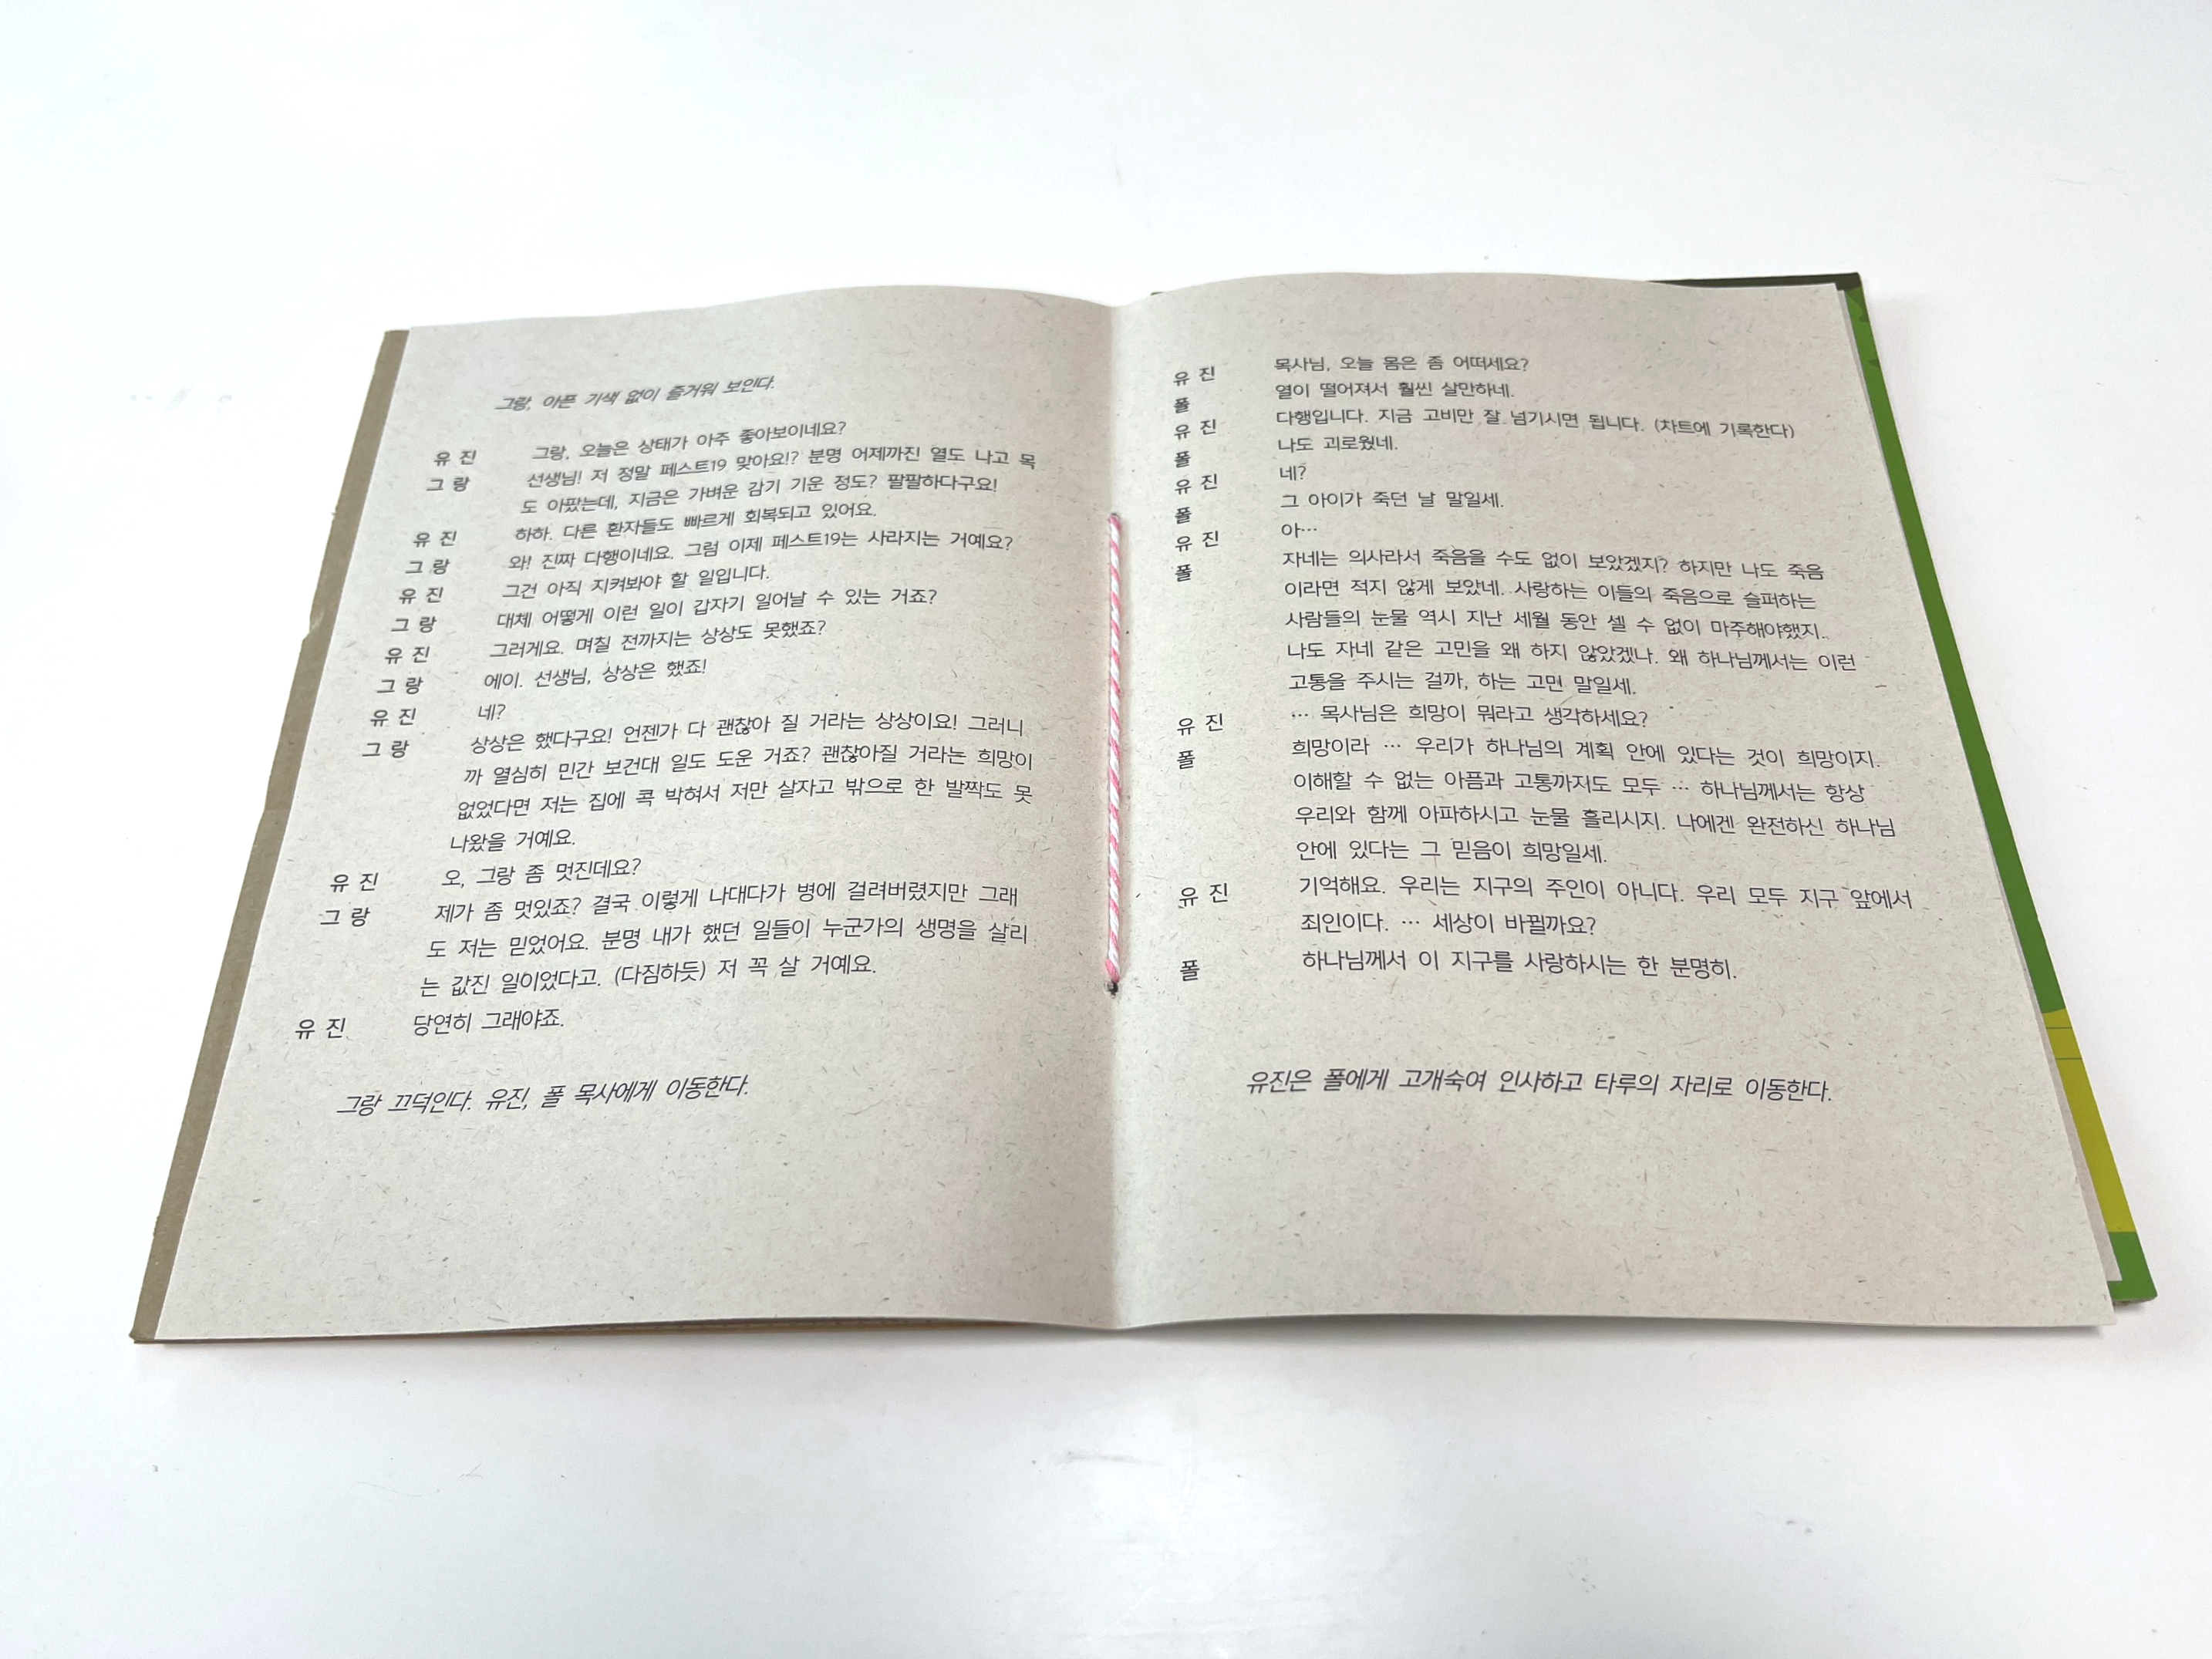 그랑, 아픈 기색 없이 즐거워 보인다.
유 진 그랑, 오늘은 상태가 아주 좋아보이네요?
그 랑 선생님! 저 정말 페스트19 맞아요!? 분명 어제까진 열도 나고 목
도 아팠는데, 지금은 가벼운 감기 기운 정도? 팔팔하다구요!
유 진 하하. 다른 환자들도 빠르게 회복되고 있어요.
그 랑 와! 진짜 다행이네요. 그럼 이제 페스트19는 사라지는 거예요?
유 진 그건 아직 지켜봐야 할 일입니다.
그 랑 대체 어떻게 이런 일이 갑자기 일어날 수 있는 거죠?
유 진 그러게요. 며칠 전까지는 상상도 못했죠?
그 랑 에이. 선생님, 상상은 했죠!
유 진 네?
그 랑 상상은 했다구요! 언젠가 다 괜찮아 질 거라는 상상이요! 그러니
까 열심히 민간 보건대 일도 도운 거죠? 괜찮아질 거라는 희망이
없었다면 저는 집에 콕 박혀서 저만 살자고 밖으로 한 발짝도 못
나왔을 거예요.
유 진 오, 그랑 좀 멋진데요?
그 랑 제가 좀 멋있죠? 결국 이렇게 나대다가 병에 걸려버렸지만 그래
도 저는 믿었어요. 분명 내가 했던 일들이 누군가의 생명을 살리
는 값진 일이었다고. (다짐하듯) 저 꼭 살 거예요.
유 진 당연히 그래야죠.
그랑 끄덕인다. 유진, 폴 목사에게 이동한다.
유 진 목사님, 오늘 몸은 좀 어떠세요?
폴 열이 떨어져서 훨씬 살만하네.
유 진 다행입니다. 지금 고비만 잘 넘기시면 됩니다. (차트에 기록한다)
폴 나도 괴로웠네.
유 진 네?
폴 그 아이가 죽던 날 말일세.
유 진 아…
폴 자네는 의사라서 죽음을 수도 없이 보았겠지? 하지만 나도 죽음
이라면 적지 않게 보았네. 사랑하는 이들의 죽음으로 슬퍼하는
사람들의 눈물 역시 지난 세월 동안 셀 수 없이 마주해야했지.
나도 자네 같은 고민을 왜 하지 않았겠나. 왜 하나님께서는 이런
고통을 주시는 걸까, 하는 고먼 말일세.
유 진 … 목사님은 희망이 뭐라고 생각하세요?
폴 희망이라 … 우리가 하나님의 계획 안에 있다는 것이 희망이지.
이해할 수 없는 아픔과 고통까지도 모두 … 하나님께서는 항상
우리와 함께 아파하시고 눈물 흘리시지. 나에겐 완전하신 하나님
안에 있다는 그 믿음이 희망일세.
유 진 기억해요. 우리는 지구의 주인이 아니다. 우리 모두 지구 앞에서
죄인이다. … 세상이 바뀔까요?
폴 하나님께서 이 지구를 사랑하시는 한 분명히.
유진은 폴에게 고개숙여 인사하고 타루의 자리로 이동한다.